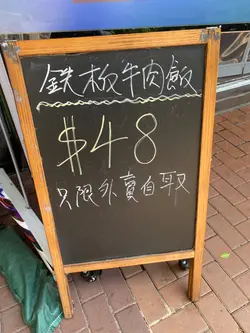 鉄板牛肉飯
$48
只限外賣自取